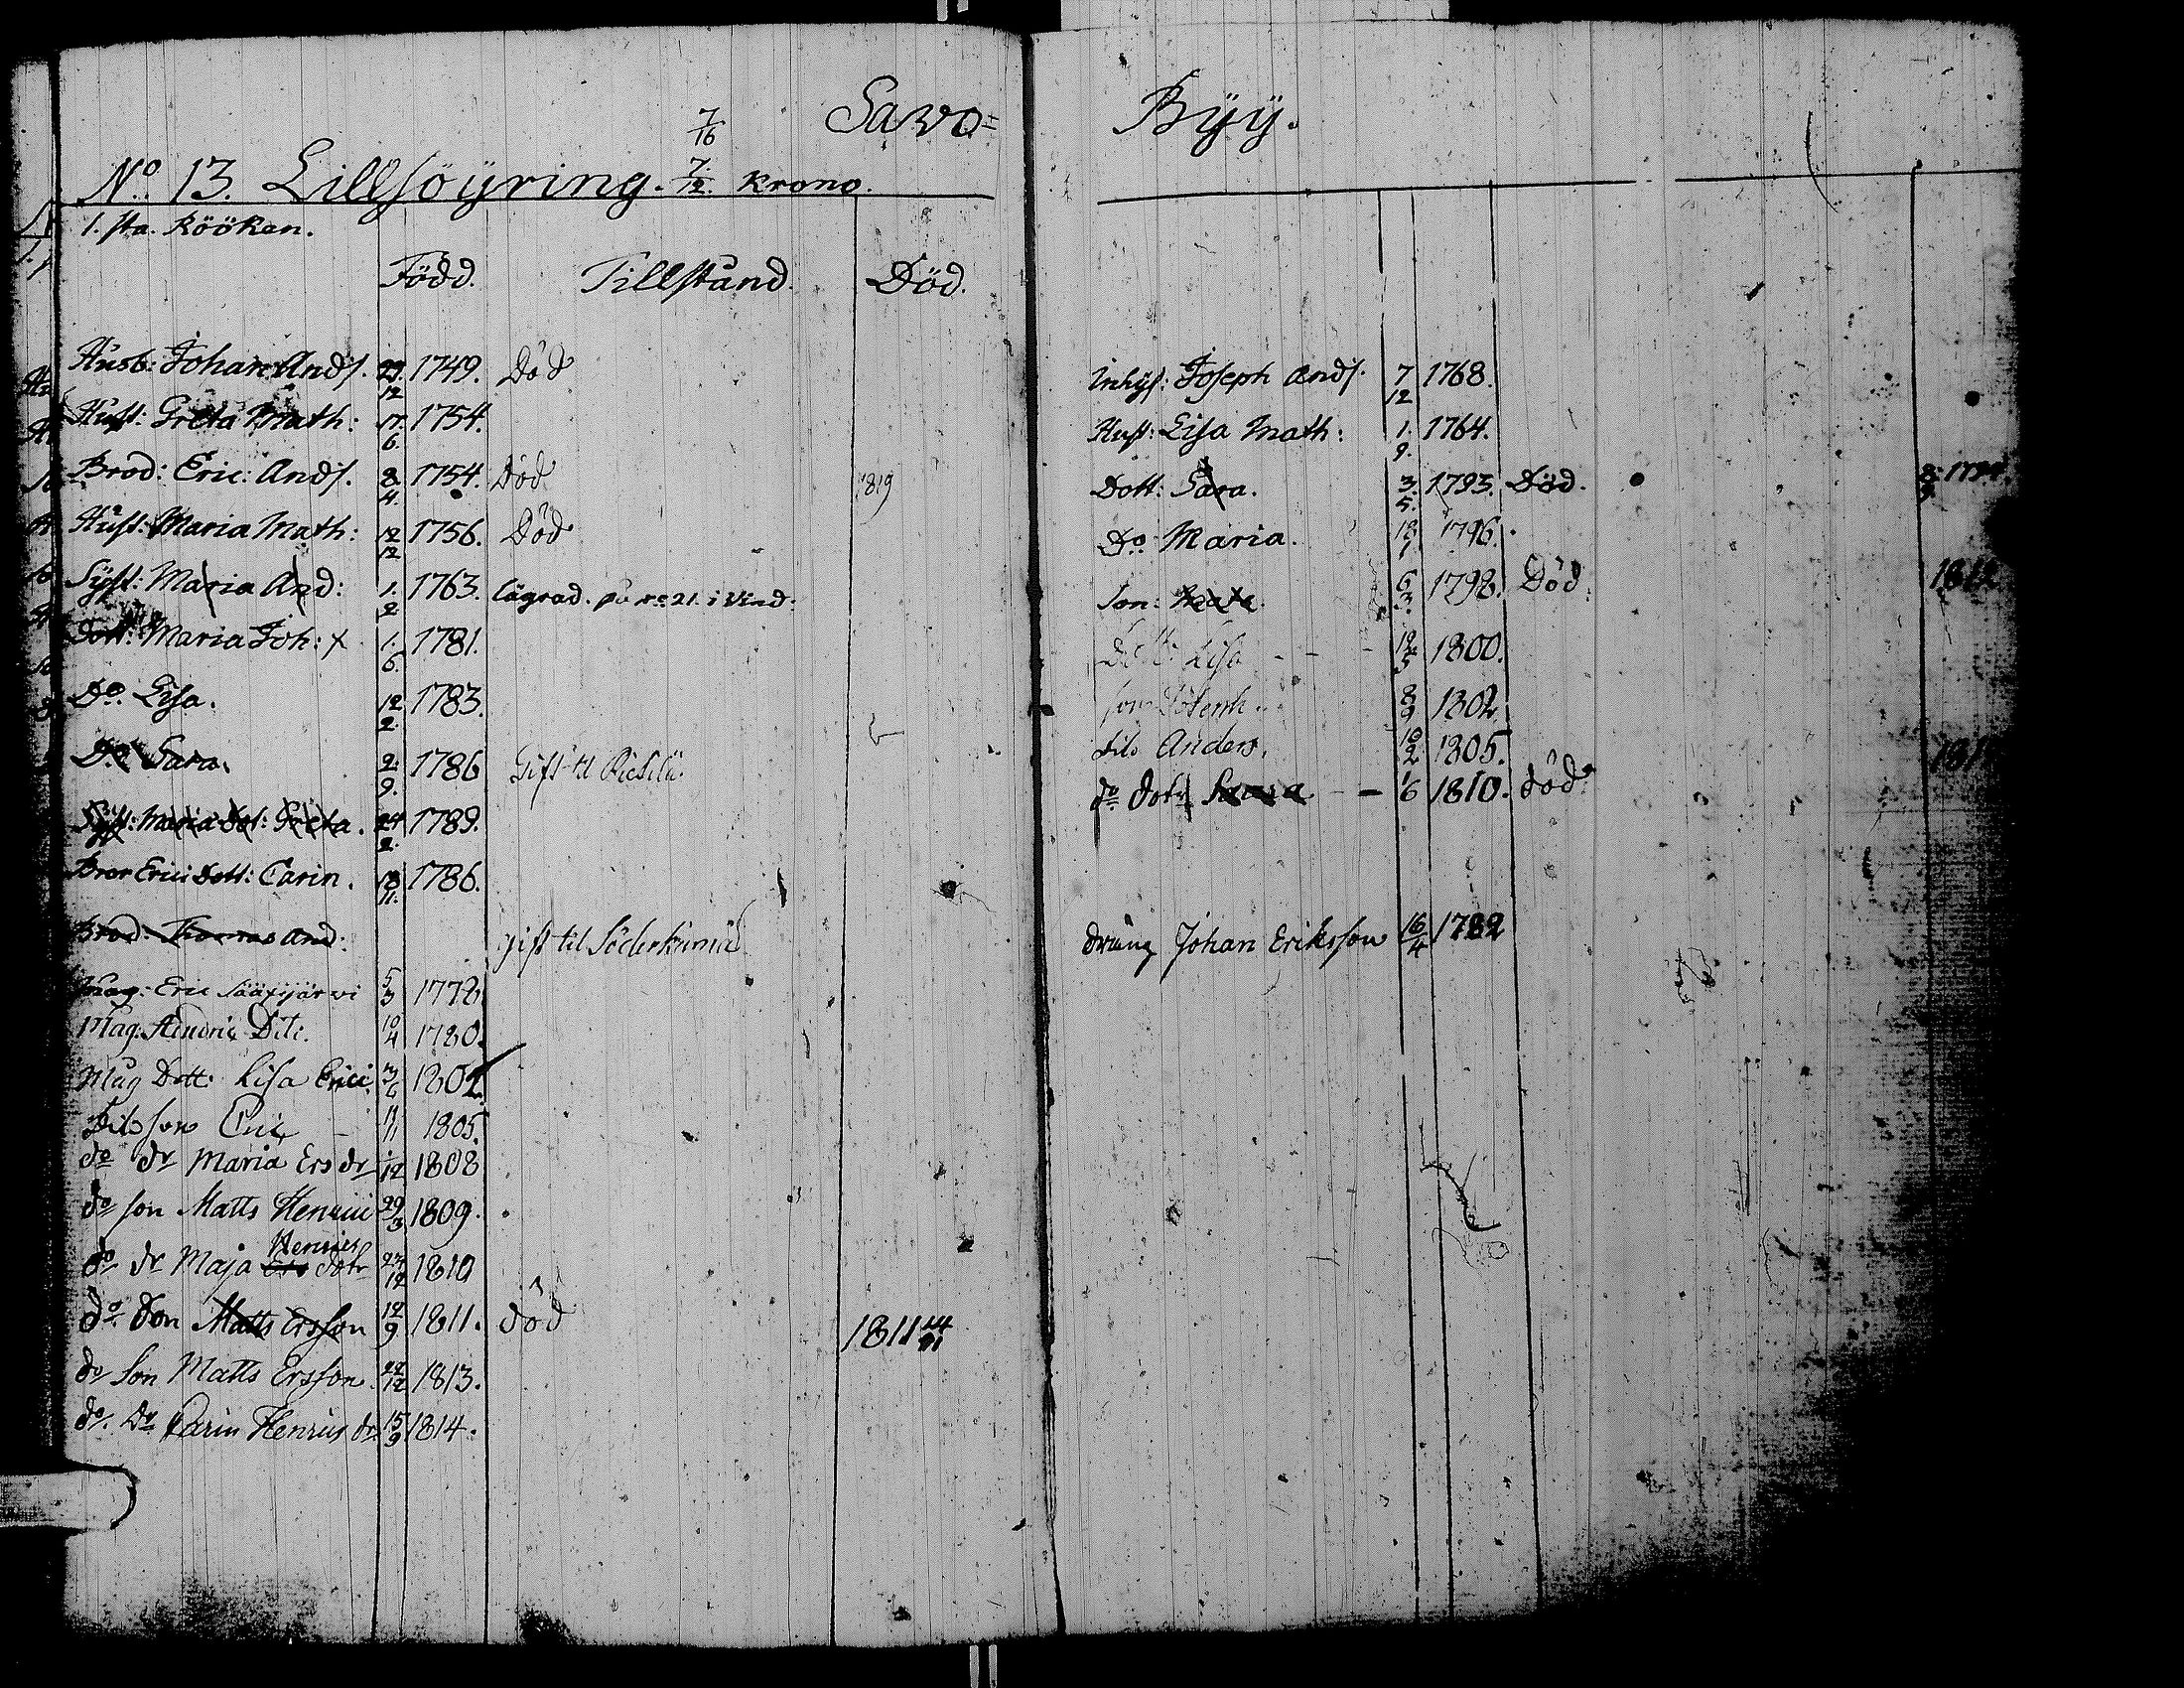 Savo=
7/16
No 13. Lillsöyring. 7/12. Krono.
1. sta. Röökan.
Född. Tillstånd. Död.
Husb: Johan Ands. 29/12 1749. Död
Hust: Greta Math: 17/6. 1754.
Brod: Eric: Ands. 8/4. 1754. Död 1819
Hust: Maria Math: 12/12 1756. Död
Syst: Maria And: 1/2 1763. lägrad. på no 21. i Vind:
Dott: Maria Joh: x 1/6. 1781.
Do. Lisa. 12/2. 1783.
Do Sara. 2/9. 1786 Gift til
Syst: Maria Dot: Greta. 24/2. 1789.
Bror Erici Dott: Carin. 18/11. 1786.
Brod: Thomas And: gift til
Mag: Eric Sääxjärvi 5/3 1778
Mag: Henric Dit: 10/4 1780.
Mag Dott: Lisa Erici 3/6 1802
Dito son Eric 11/11 1805.
do dr Maria Ers dr 1/12 1808
do son Matts Henrici 29/3 1809.
Henrics
do dr Maja Ers dotr 27/12 1810
do Son Matts Ersson 12/9 1811. död 1811 14/11
do Son Matts Ersson 22/12 1813.
do. Dr Carin Henrics dr 15/9 1814.
Byy.
Inhys: Joseph Ands. 7/12 1768.
Hust: Lisa Math: 1/9. 1764.
Dott: Sara. 3/5. 1793. Död. 8/9 1794.
Do. Maria. 18/1 1796.
Son: 6/3. 1798. Död.
Dott: Lisa 12/5 1800.
son Joseph 8/9 1802
dito Anders. 10/2 1805.
do dotr Saara 1/6 1810. död
dräng Johan Eriksson 16/4 1782